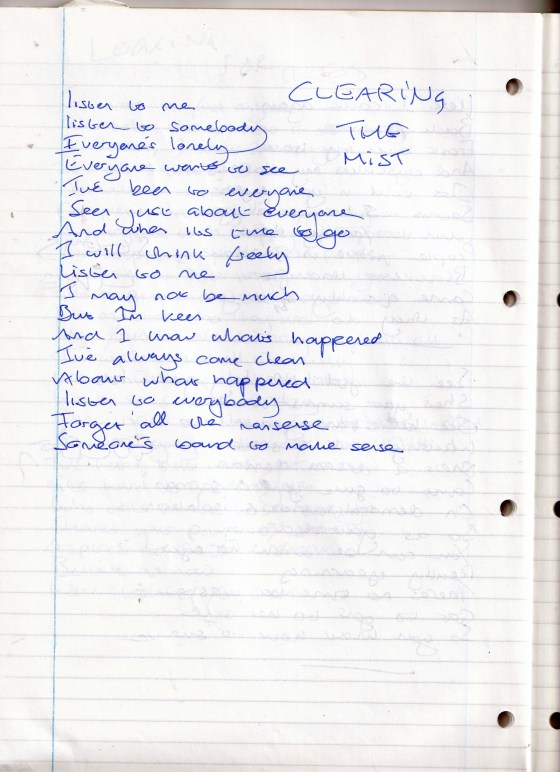 CLEARING
THE
MIST
listen to me
listen to somebody
Everyone's lonely
Everyone wants to see
I've been to everyone
Seen just about everyone
And when its time to go
I will think freely
Listen to me
I may not be much
But Im keen
And I know what's happened
I've always come clean
About what happened
listen to everybody
Forget all the nonsense
Someone's bound to make sense